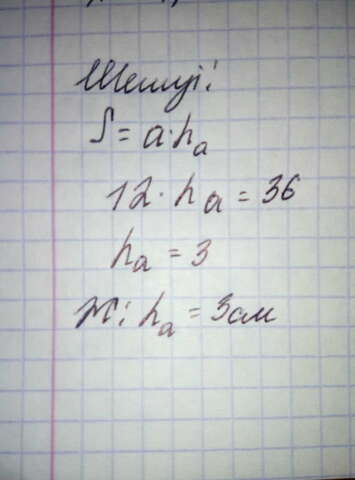 Шешуі:
S = a·hₐ
12·hₐ = 36
hₐ = 3
Ж: hₐ = 3см